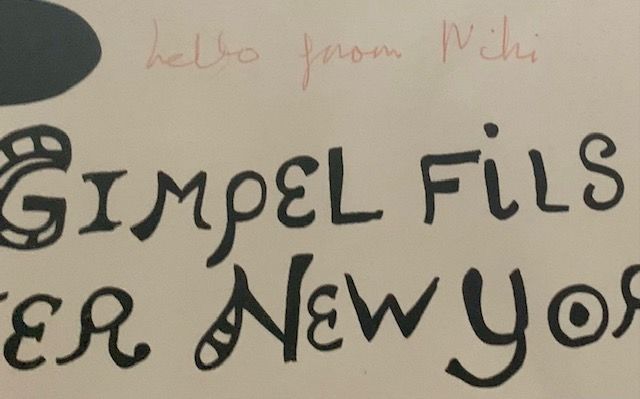 hello from Niki
GIMPEL FiLS
ER NEW YOR